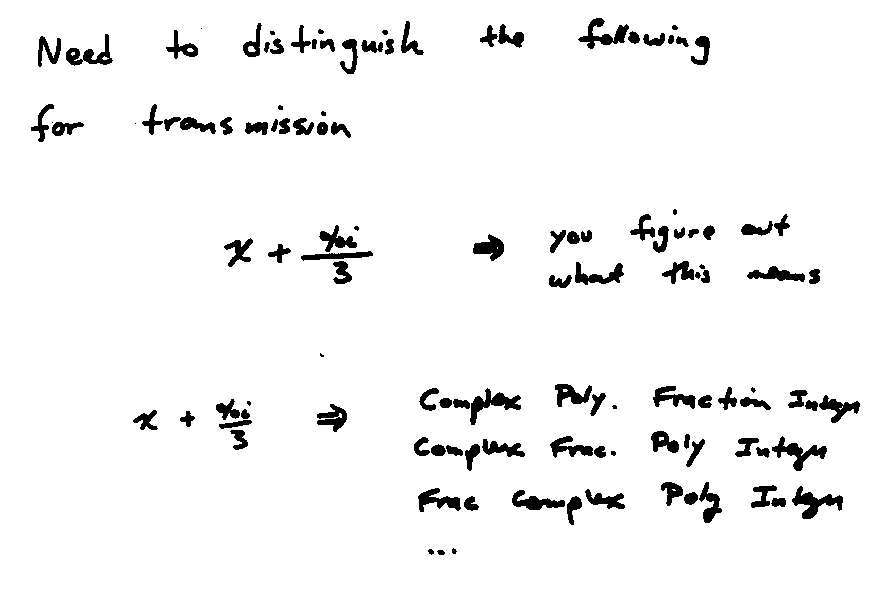 Need to distinguish the following
for transmission
x + %i/3 ⇒ you figure out
what this means
x + %i/3 ⇒ Complex Poly. Fraction Integer
Complex Frac. Poly Integer
Frac Complex Poly Integer
...